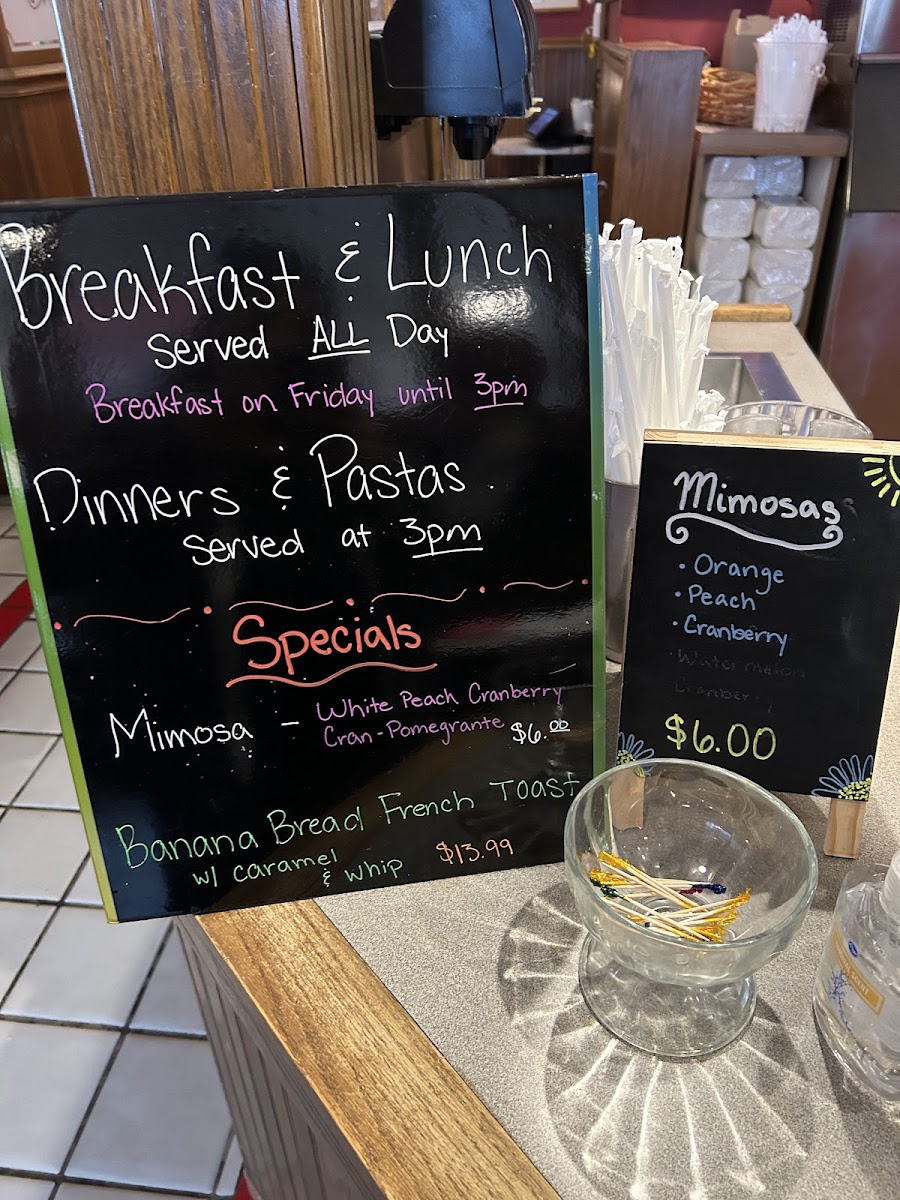 Breakfast & Lunch
served ALL Day
Breakfast on Friday until 3pm
Dinners & Pastas
served at 3pm
Specials
Mimosa - White Peach Cranberry
Cran-Pomegrante $6.00
Banana Bread French Toast
w/ caramel & whip $13.99
Mimosas
• Orange
• Peach
• Cranberry
• Watermelon
$6.00